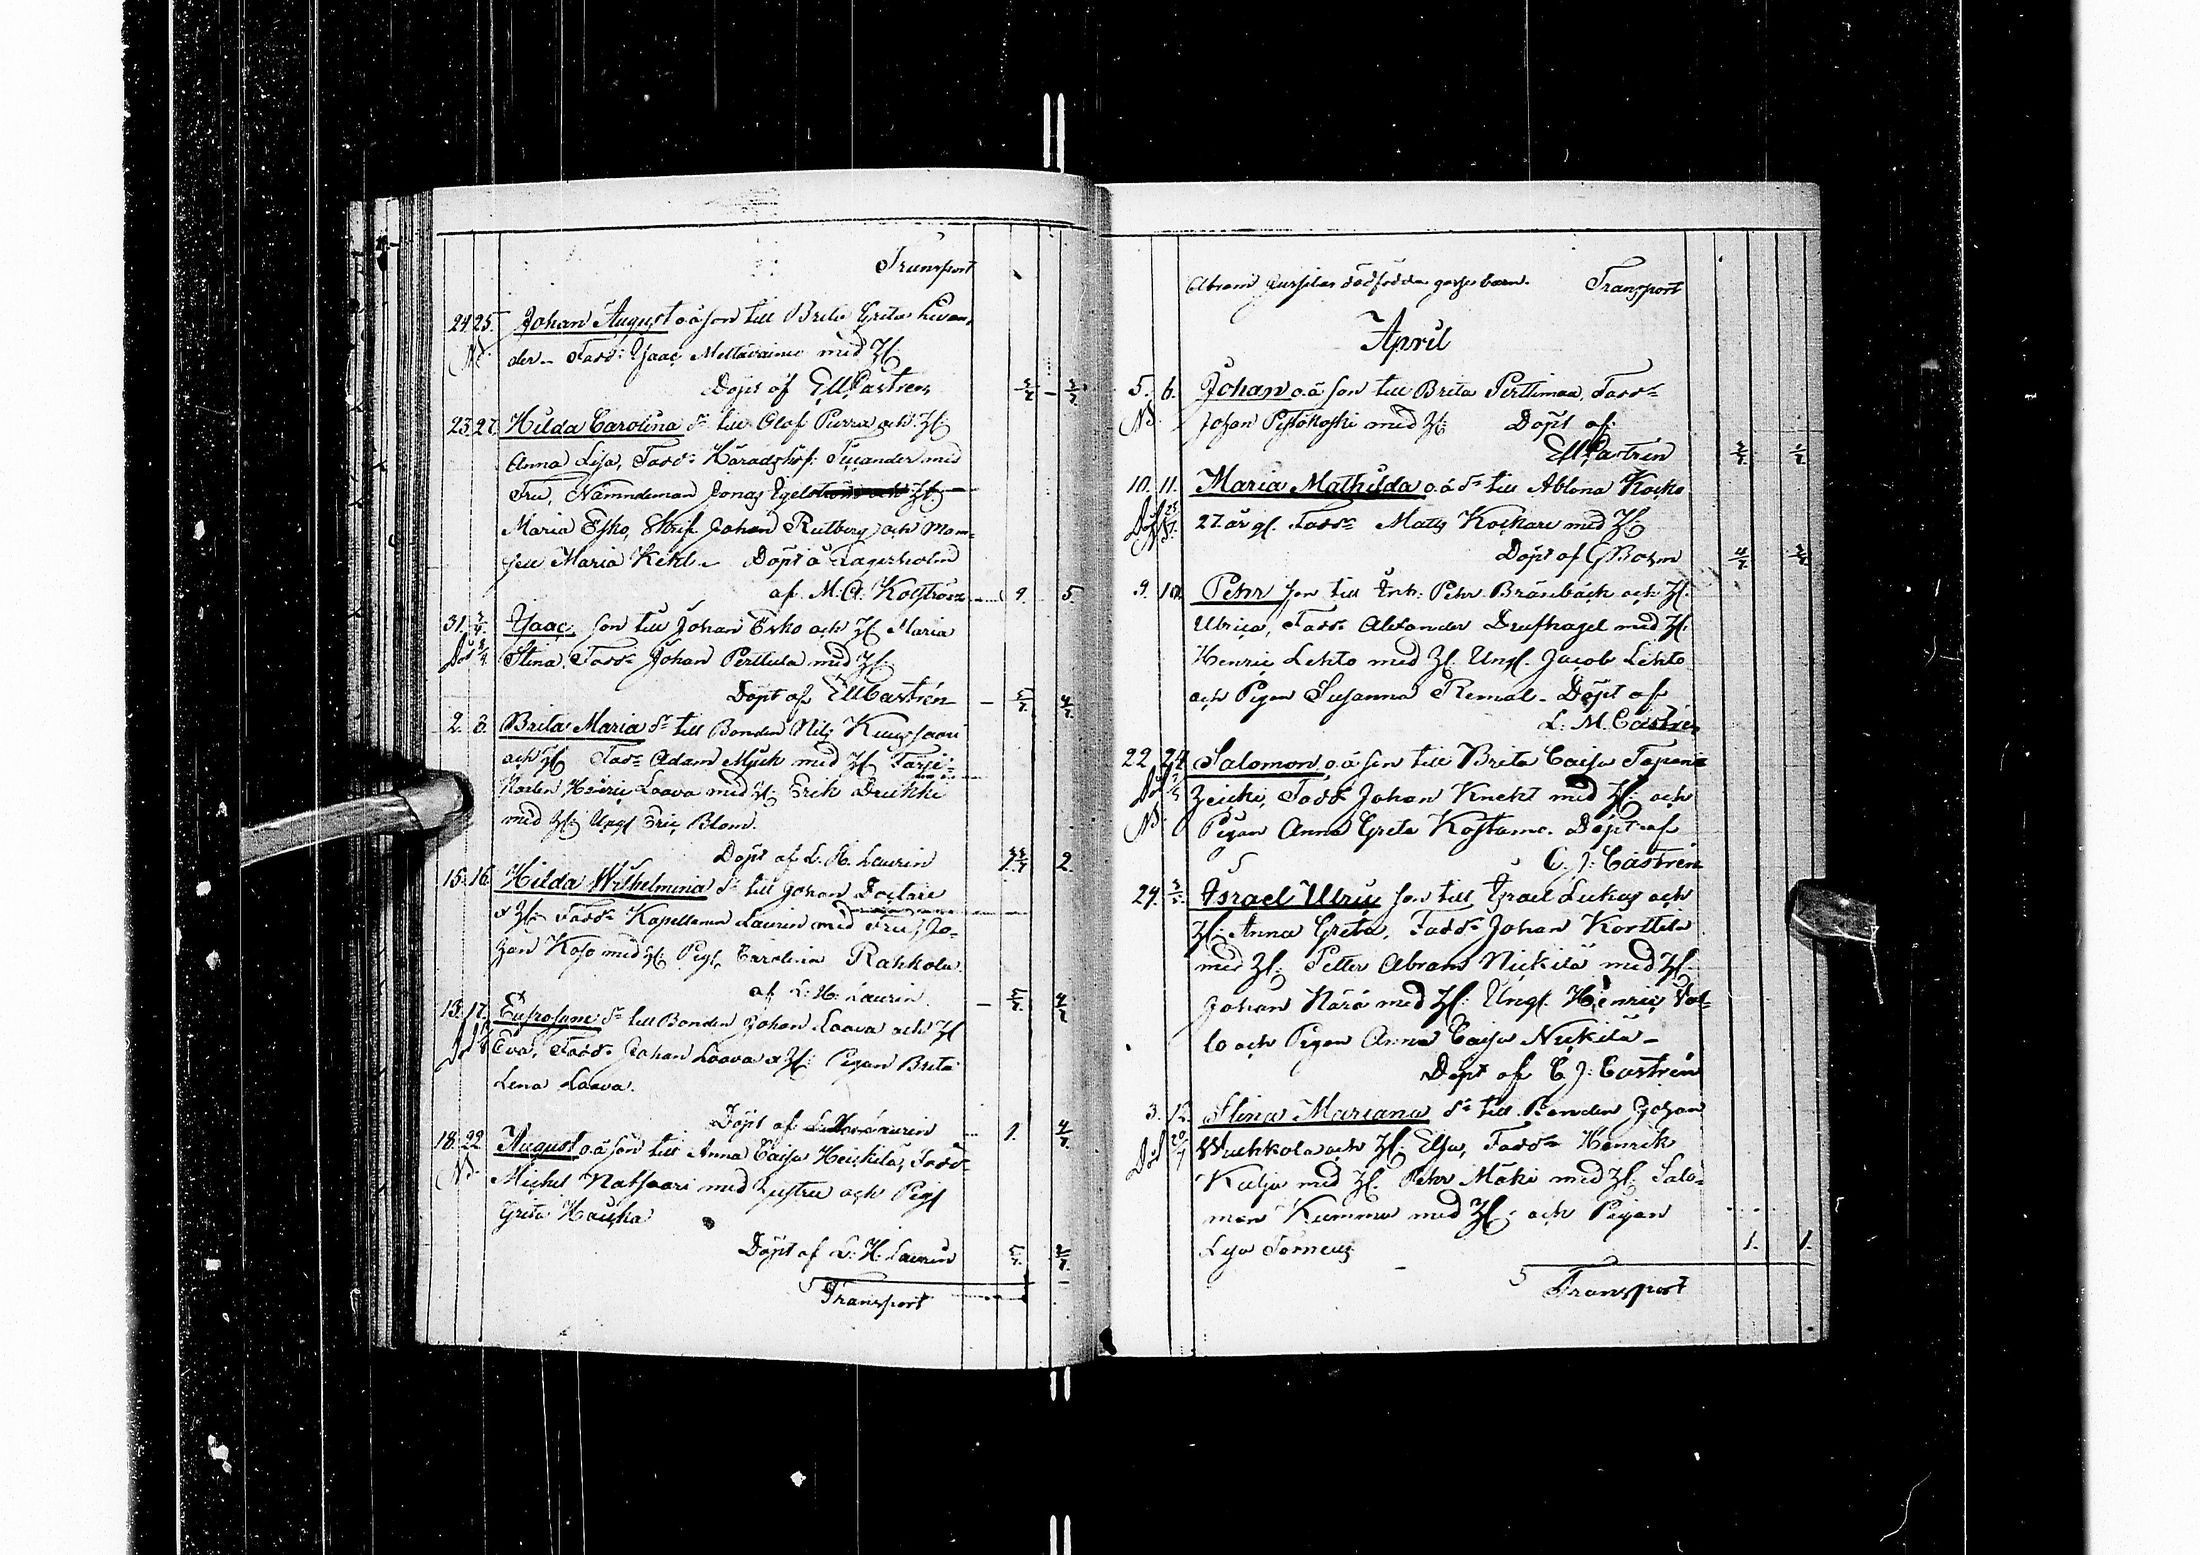 Transport
24 25. Johan August o.ä son till Brita Greta Livan-
Nd. der. Fadd: Isaac Mellavainio med H:
Döpt af E M Castren
23. 27. Hilda Carolina Dr till Olof Purra och H:
Anna Lisa, Fadd: Häradshöf: Tucander med
Fru, Nämndeman Jonas Egelström och H:
Maria Esko, Skrif. Johan Rutberg och Mam-
sell Maria Kekl. Döpt å Lagerholm
af M. A. Kolström 9. 5.
31. 2/4. Isaac, son till Johan Esko och H: Maria
Död Stina. Fadd: Johan Perttula med H:
Döpt af E M Castrén
2. 3. Brita Maria Dr till Bonden Nils Kuusisaari
och H: Fadd: Adam Myck med H:
Henric Laava med H: Erik Drukki
med H: Ungl Eric Blom.
Döpt af L. H. Laurin 2.
15. 16. Hilda Wilhelmina Dr till Johan
& H: Fadd: Kapellanen Laurin med Fru, Jo-
han Koso med H: Pig. Carolina Rahkola.
af L. H. Laurin
13. 17. Eufrosyne Dr till Bonden Johan Laava och H:
Död Eva, Fadd: Johan Laava & H: Pigan Brita
Lena Laava.
Döpt af L. H. Laurin 1.
18. 22 August o.ä son till Anna Caisa Heickilä, Fadd:
Nd. Michel Matsaari med hustru och Pig
Greta Hauska
Döpt af L. H. Laurin
Transport
Abram Jussilas dödfödda gossebarn. Transport
April
5. 6. Johan o.ä son till Brita Perttunen, Fadd:
Nd. Johan Pistokoski med H: Döpt af
E M Castrén
10. 11. Maria Mathilda o.ä Dr till Ablona Kocko
Död 27 år gl. Fadd: Matts Kockare med H:
Döpt af G Bohm
9. 10. Pehr son till Inh: Pehr Bränbäck och H:
Ulrica, Fadd: Alexander Drufhagel med H:
Henric Lehto med H: Ungl. Jacob Lehto
och Pigan Susanna Remal. Döpt af
L. M. Castrén
22. 24. Salomon o.ä son till Brita Caisa Tapani
Död heicki, Fadd: Johan Knekt med H: och
Nd. Pigan Anna Greta Kostamo. Döpt af
C. J. Castrén
24. 3/5. Israel Ulric son till Israel Lukas och
H: Anna Greta, Fadd: Johan Korttila
med H: Petter Abram Nickilä med H:
Johan Närä med H: Ungl. Henric Val-
lo och Pigan Anna Caisa Nickilä
Döpt af C. J. Castrén
3. 12. Stina Mariana Dr till Bonden Johan
Död Wuhkola och H: Elsa, Fadd: Henrik
Kalja med H: Pehr Mäki med H: Salo-
mon Kummu med H: och Pigan
Lisa Torneus 1. 1.
Transport